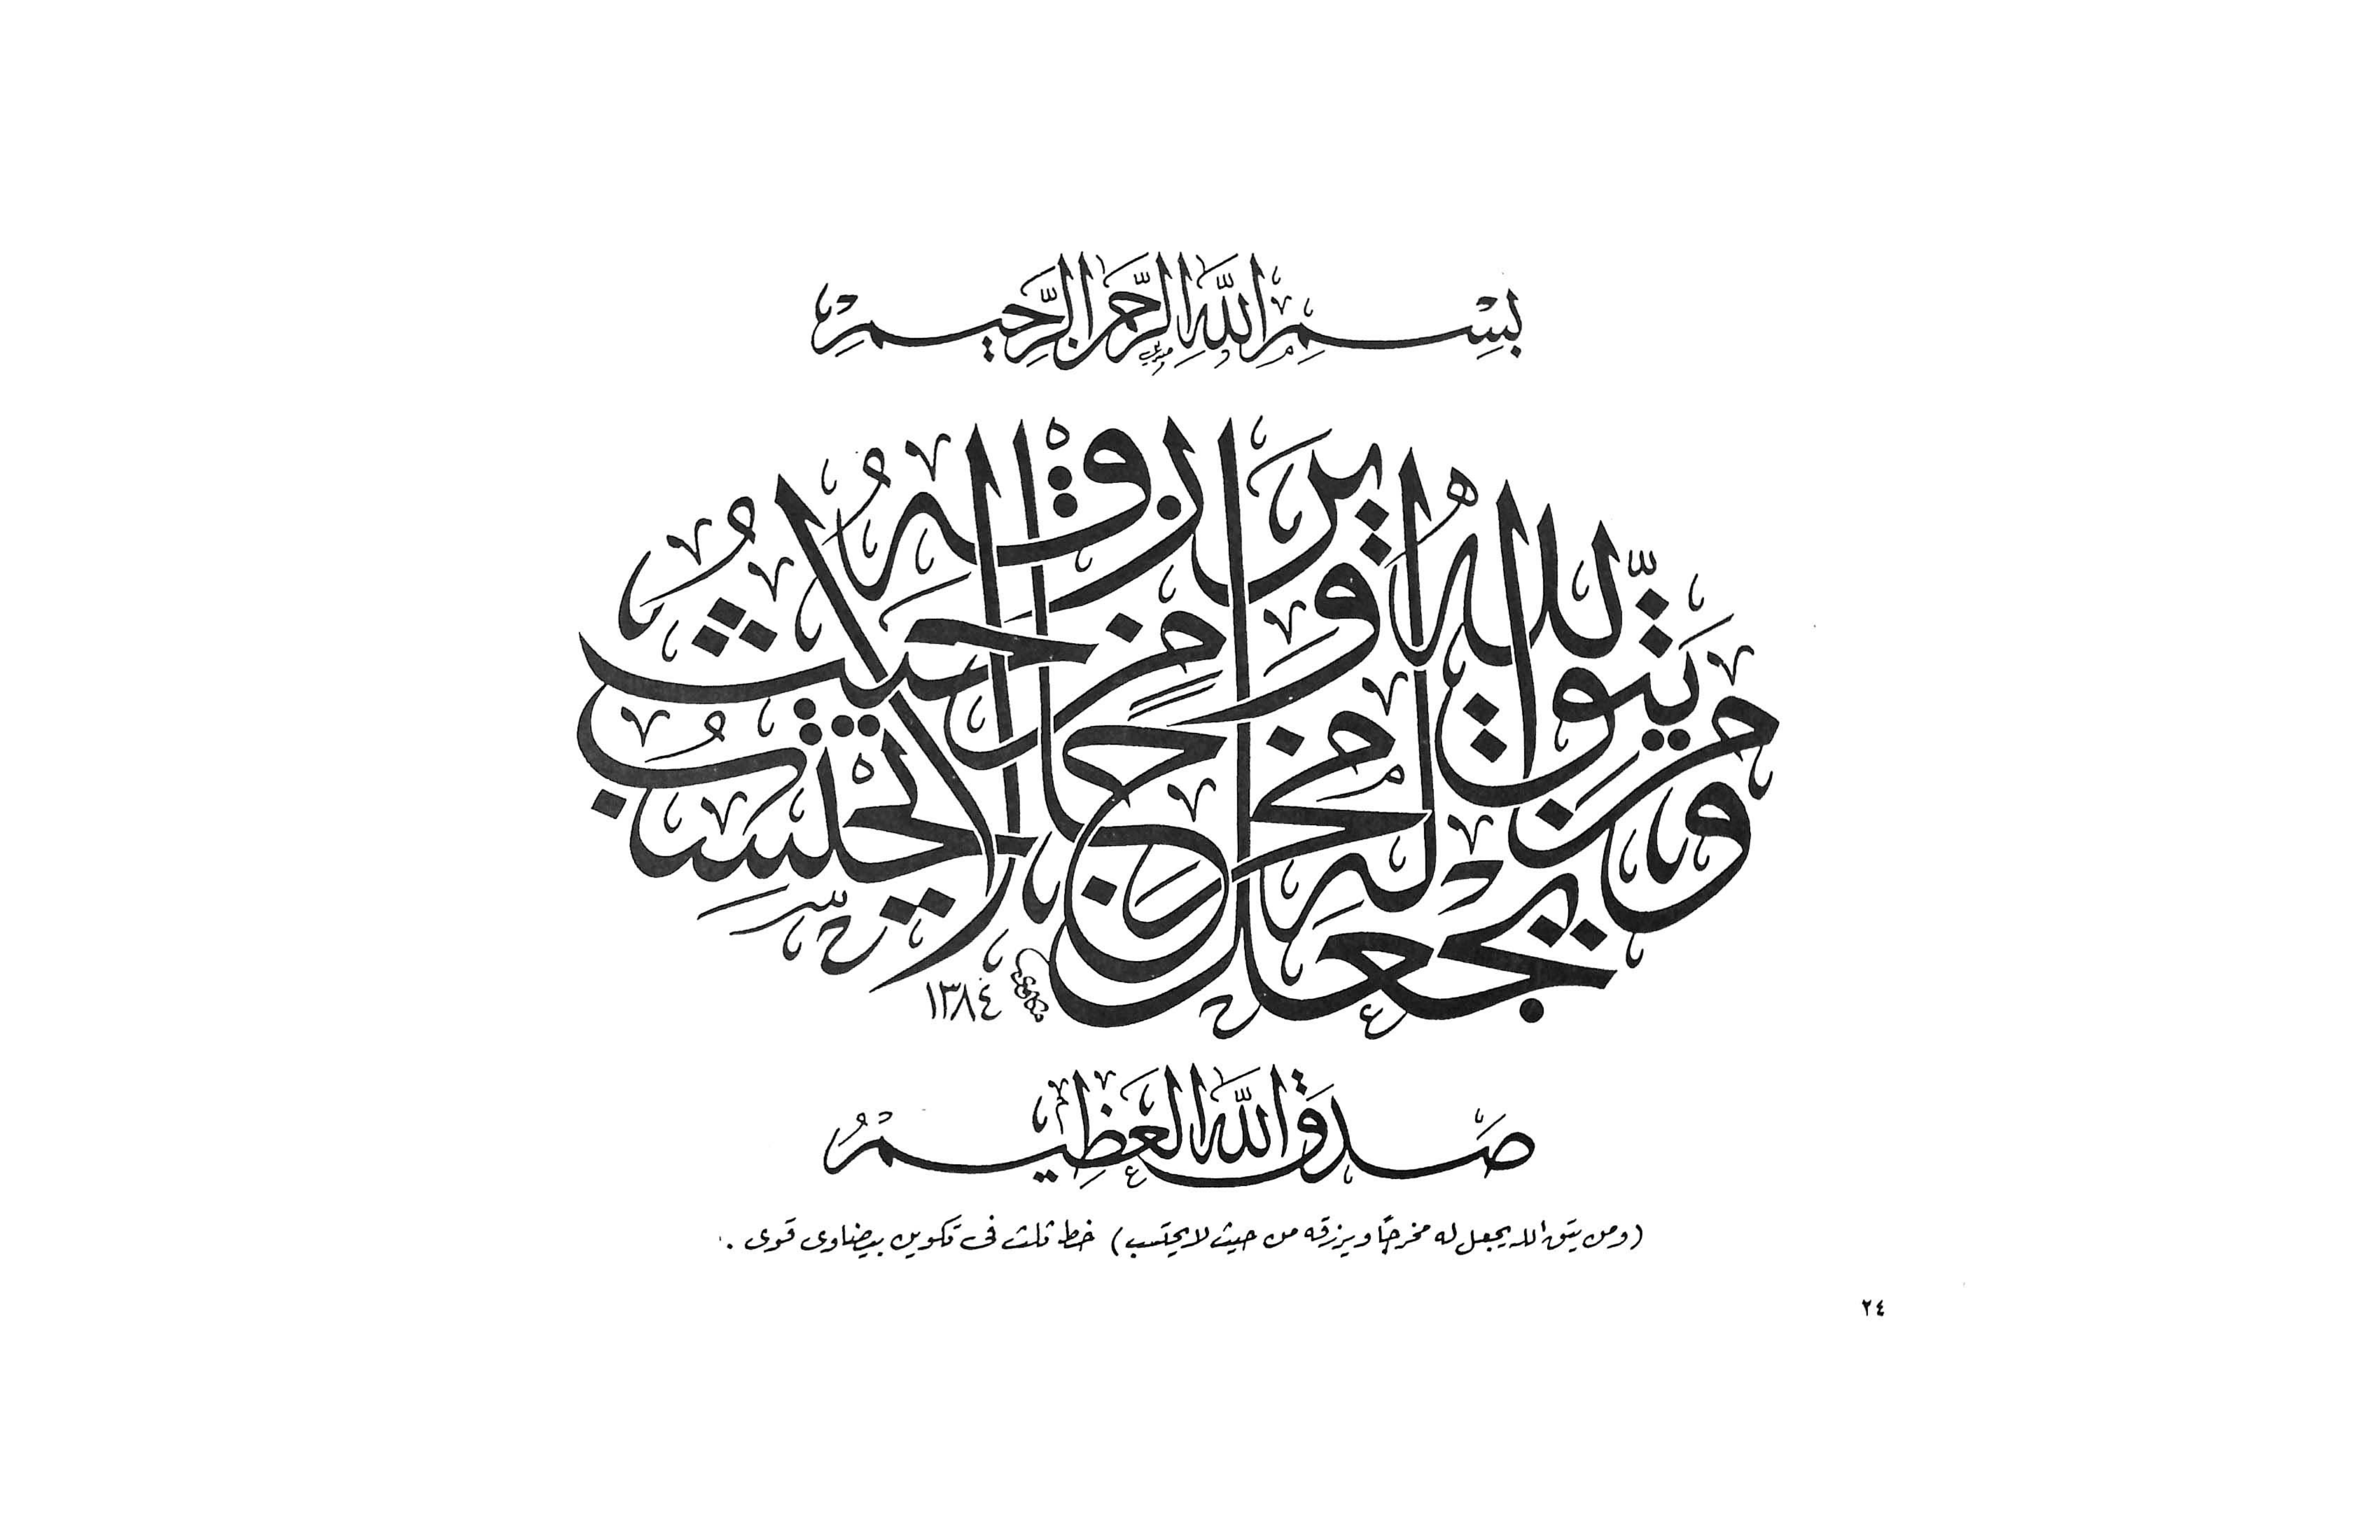 بِسْمِ اللَّهِ الرَّحْمَنِ الرَّحِيمِ
وَمَنْ يَتَّقِ اللَّهَ يَجْعَلْ لَهُ مَخْرَجًا وَيَرْزُقْهُ مِنْ حَيْثُ لَا يَحْتَسِبُ
١٣٨٤
صَدَقَ اللَّهُ الْعَظِيمُ
(ومن يتق الله يجعل له مخرجاً ويرزقه من حيث لا يحتسب) خط ثلث فى تكوين بيضاوى قوى .
٢٤